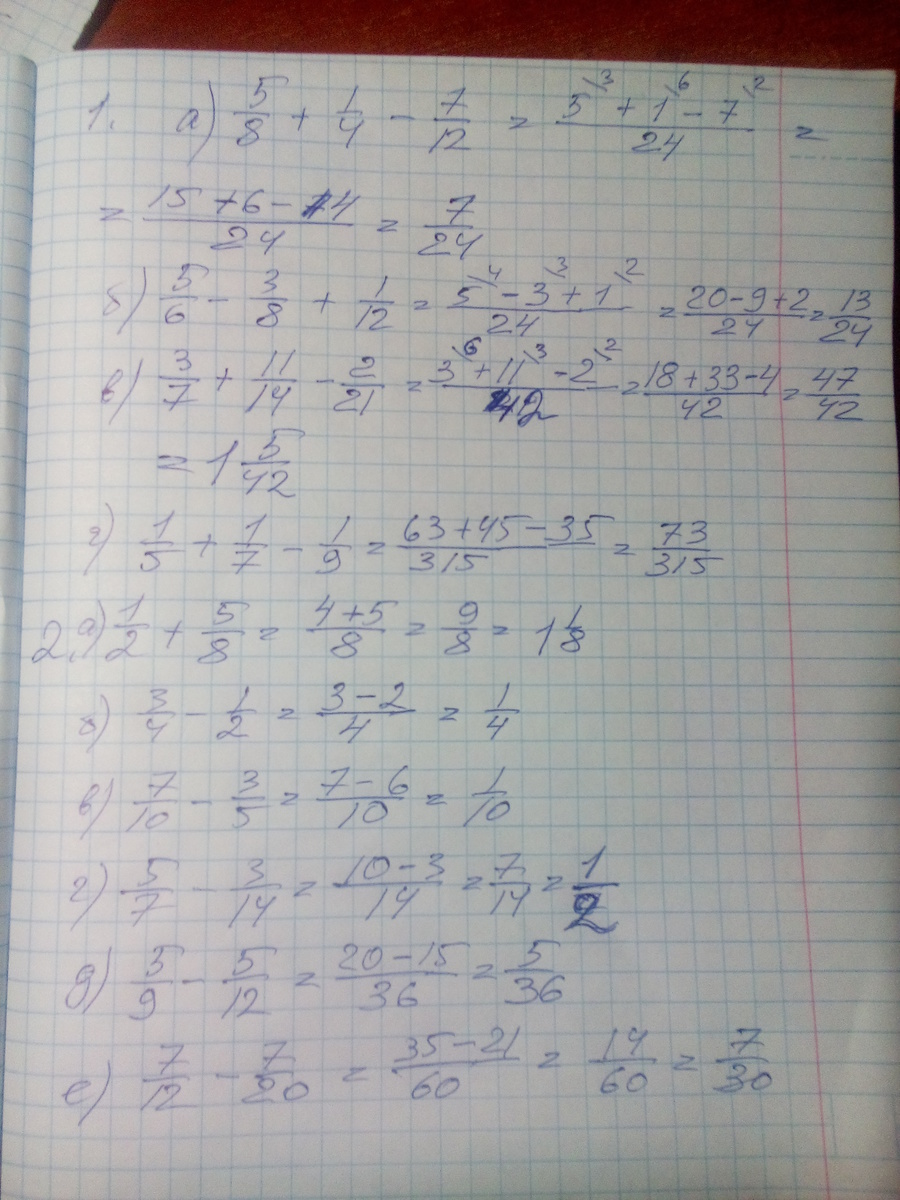 1. а) 5/8 + 1/4 - 7/12 = (5\3 + 1\6 - 7\2)/24 =
= (15 + 6 - 14)/24 = 7/24
б) 5/6 - 3/8 + 1/12 = (5\4 - 3\3 + 1\2)/24 = (20 - 9 + 2)/24 = 13/24
в) 3/7 + 11/14 - 2/21 = (3\6 + 11\3 - 2\2)/42 = (18 + 33 - 4)/42 = 47/42
= 1 5/42
г) 1/5 + 1/7 - 1/9 = (63 + 45 - 35)/315 = 73/315
2. а) 1/2 + 5/8 = (4 + 5)/8 = 9/8 = 1 1/8
б) 3/4 - 1/2 = (3 - 2)/4 = 1/4
в) 7/10 - 3/5 = (7 - 6)/10 = 1/10
г) 5/7 - 3/14 = (10 - 3)/14 = 7/14 = 1/2
д) 5/9 - 5/12 = (20 - 15)/36 = 5/36
е) 7/12 - 7/20 = (35 - 21)/60 = 14/60 = 7/30